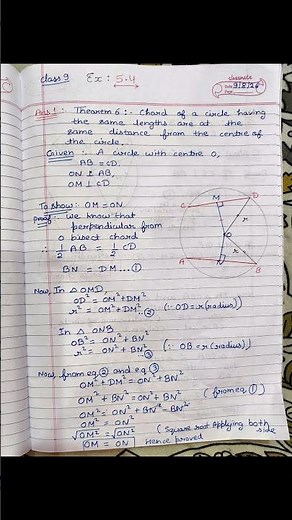 class 9 Ex: 5.4
classmate
Date 9/5/26
Page
Ans 1: Theorem 6:- Chord of a circle having
the same lengths are at the
same distance from the centre of
the circle.
Given :- A circle with centre O,
AB = CD.
ON ⊥ AB,
OM ⊥ CD
To show: OM = ON.
Proof:- we know that
perpendicular from
O bisect chord
∴ 1/2 AB = 1/2 CD
BN = DM ... ①
C M D
r
O
r
A N B
Now, In △ OMD,
OD² = OM² + DM²
r² = OM² + DM² ..② (∵ OD = r (radius))
In △ ONB
OB² = ON² + BN²
r² = ON² + BN² ③ (∵ OB = r (radius))
Now, from eq ② and eq ③
OM² + DM² = ON² + BN²
OM² + BN² = ON² + BN² (from eq ①)
OM² = ON² + BN² - BN²
OM² = ON²
√OM² = √ON² (Square root Applying both side
OM = ON Hence proved